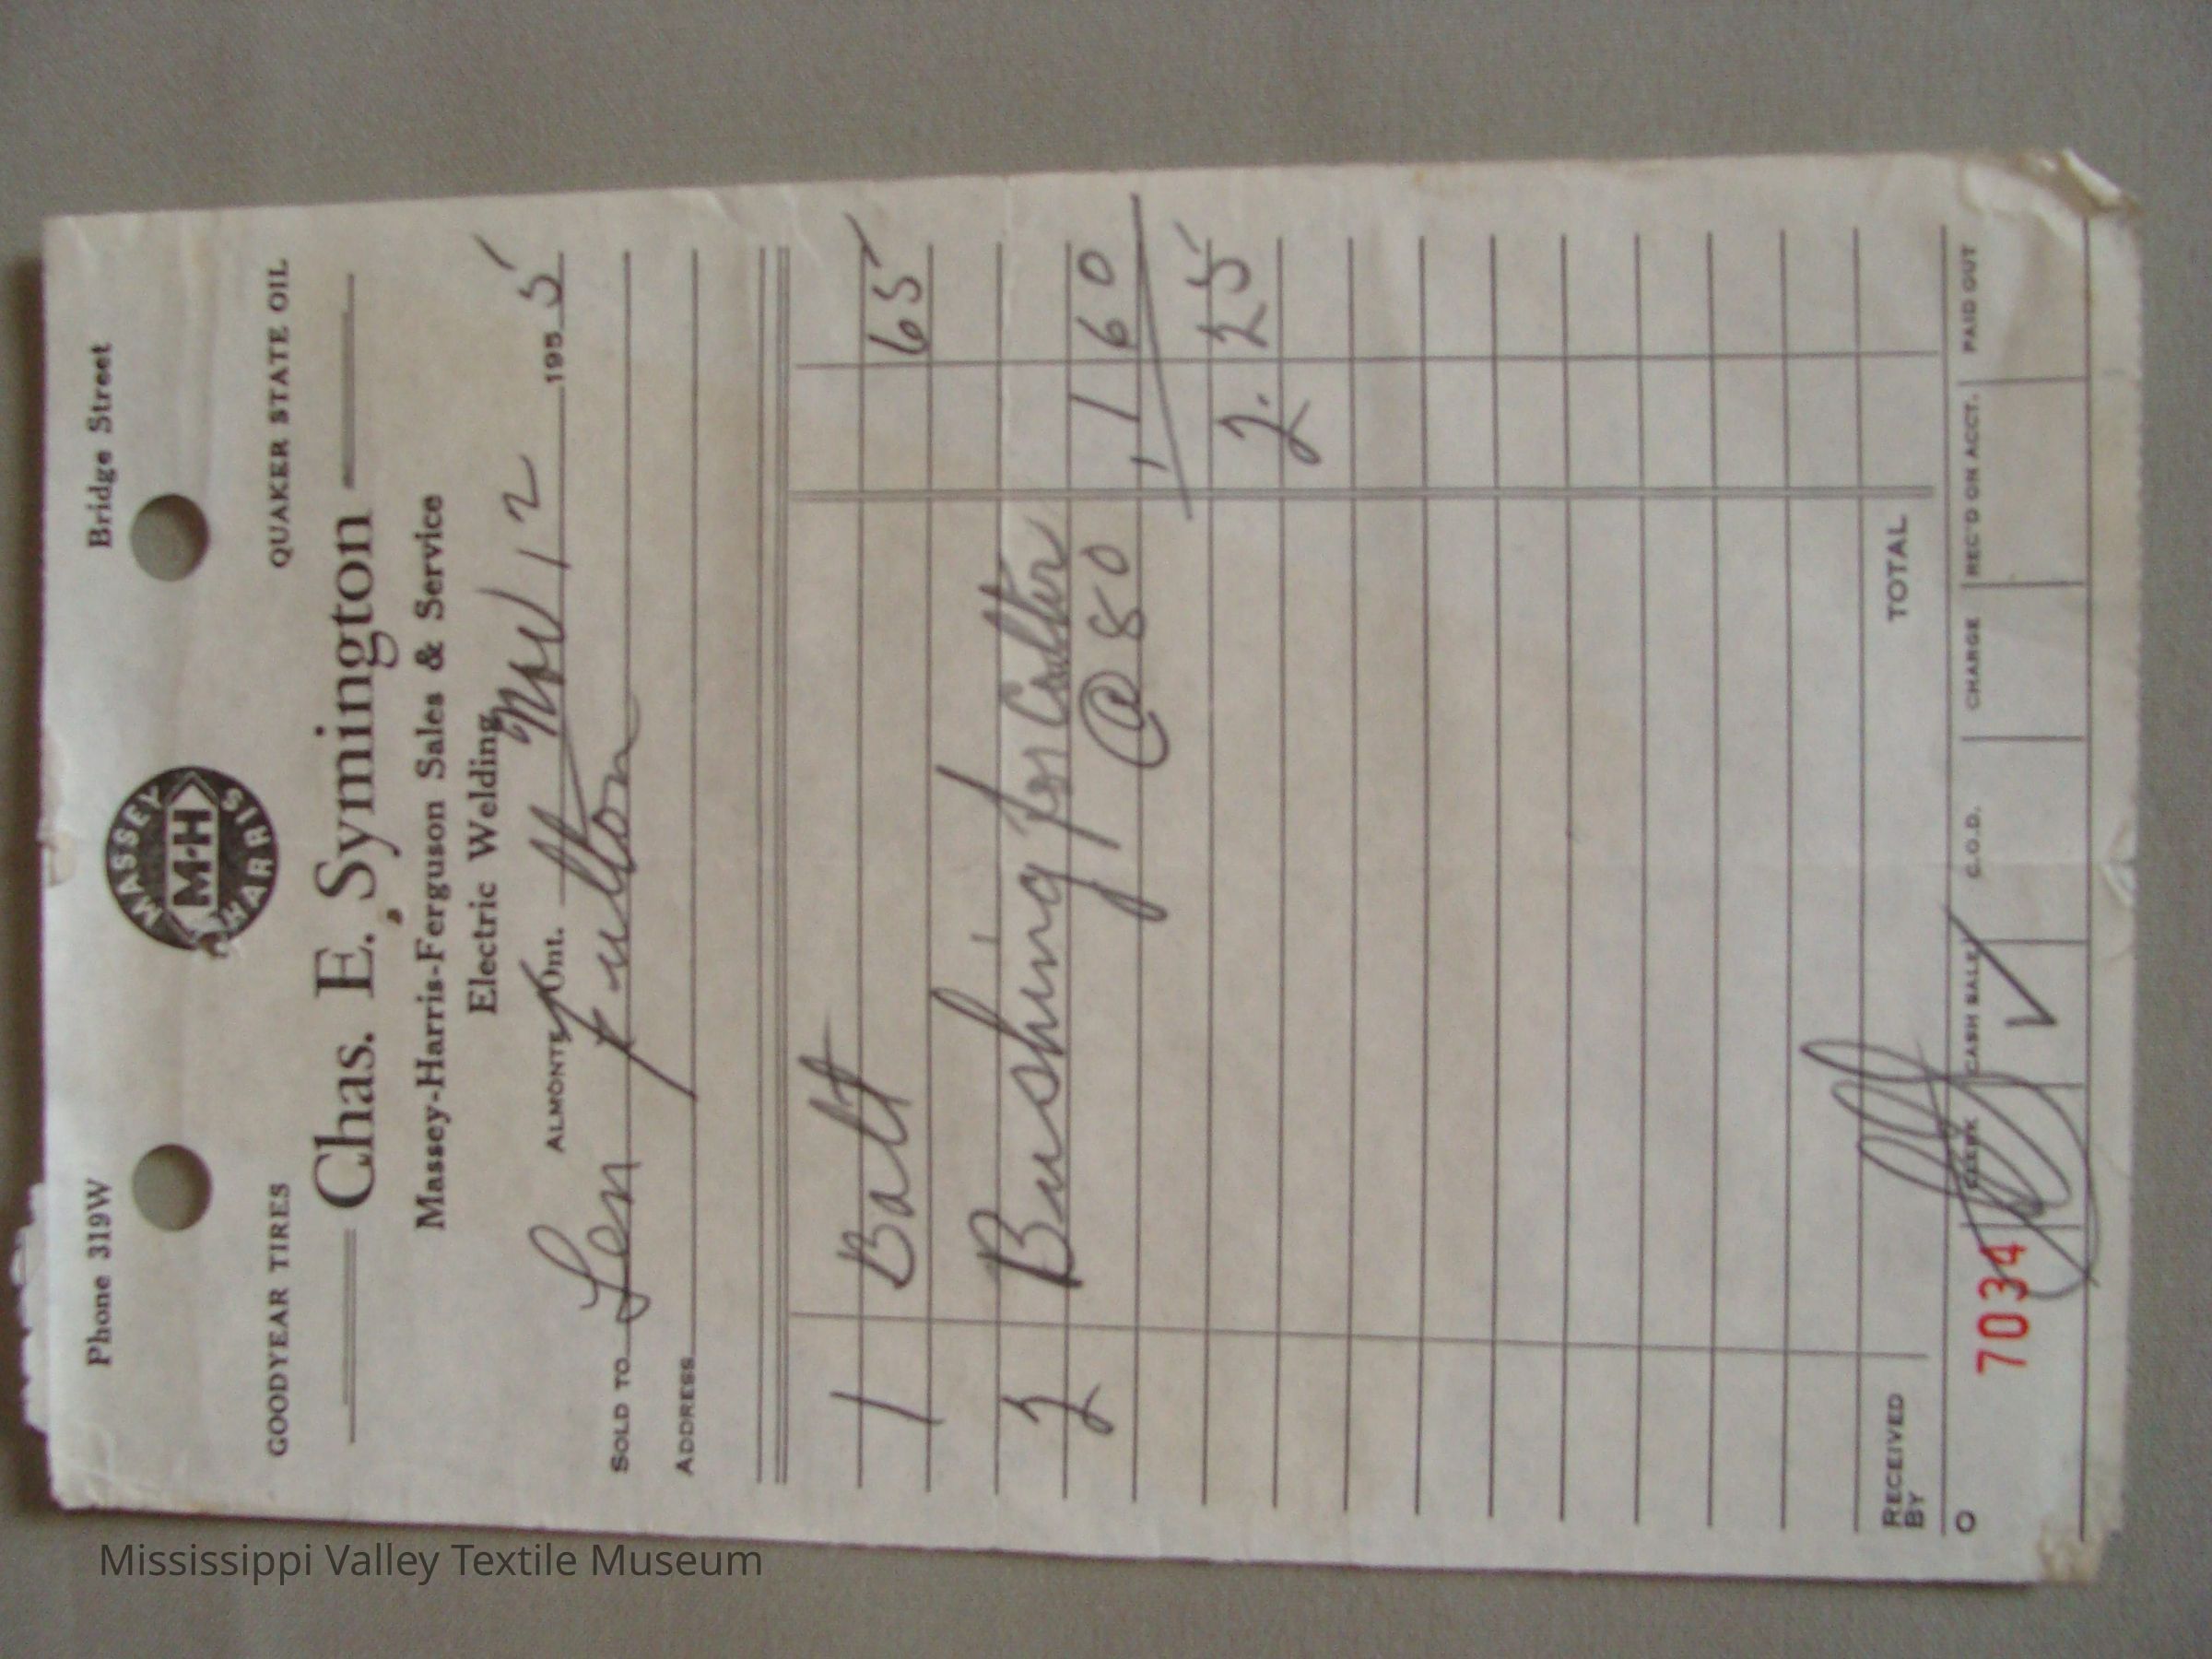 Phone 319W Bridge Street
MASSEY HARRIS
M-H
GOODYEAR TIRES QUAKER STATE OIL
Chas. E. Symington
Massey-Harris-Ferguson Sales & Service
Electric Welding
ALMONTE, Ont. Nov 12 1955
SOLD TO Len Fulton
ADDRESS
1 Balt 65
2 Bushing for
@ 80 1 60
2.25
TOTAL
RECEIVED BY
CLERK CASH SALE C.O.D. CHARGE REC'D ON ACCT. PAID OUT
O 7034 ✓
Mississippi Valley Textile Museum